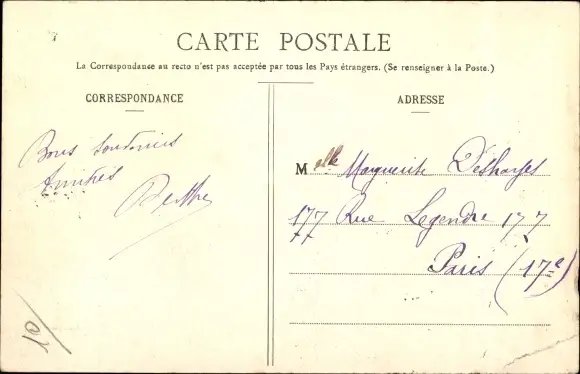 CARTE POSTALE
La Correspondance au recto n'est pas acceptée par tous les Pays étrangers. (Se renseigner à la Poste.)
CORRESPONDANCE
ADRESSE
Bons Souvenirs
Amitiés
Berthe
Melle Marguerite Désharges
177 Rue Legendre 177
Paris (17e)
10